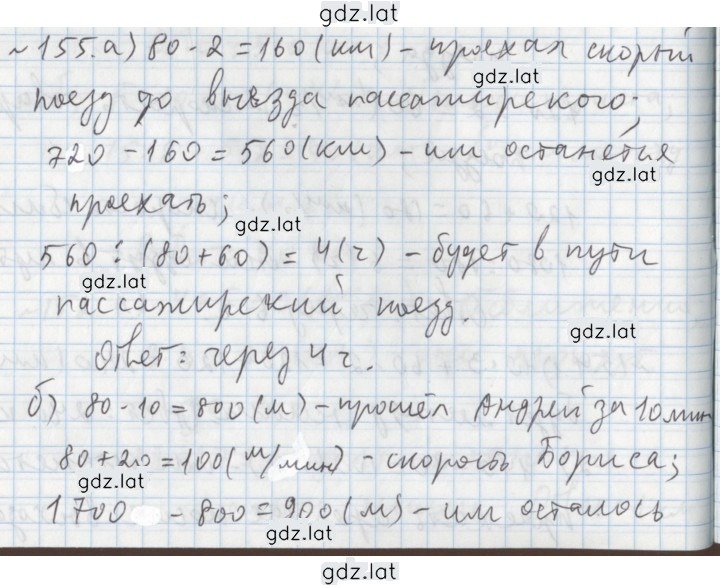 gdz.lat
№155.а) 80·2=160(км) – проехал скорый
gdz.lat
поезд до выезда пассажирского;
720 – 160 = 560(км) – им останется
gdz.lat
проехать;
gdz.lat
560 : (80+60) = 4(ч) – будет в пути
gdz.lat
пассажирский поезд.
gdz.lat
Ответ: через 4 ч.
б) 80·10=800(м) – прошёл Андрей за 10 мин
80+20=100(м/мин) – скорость Бориса;
gdz.lat
1700 – 800 = 900(м) – им осталось
gdz.lat
gdz.lat